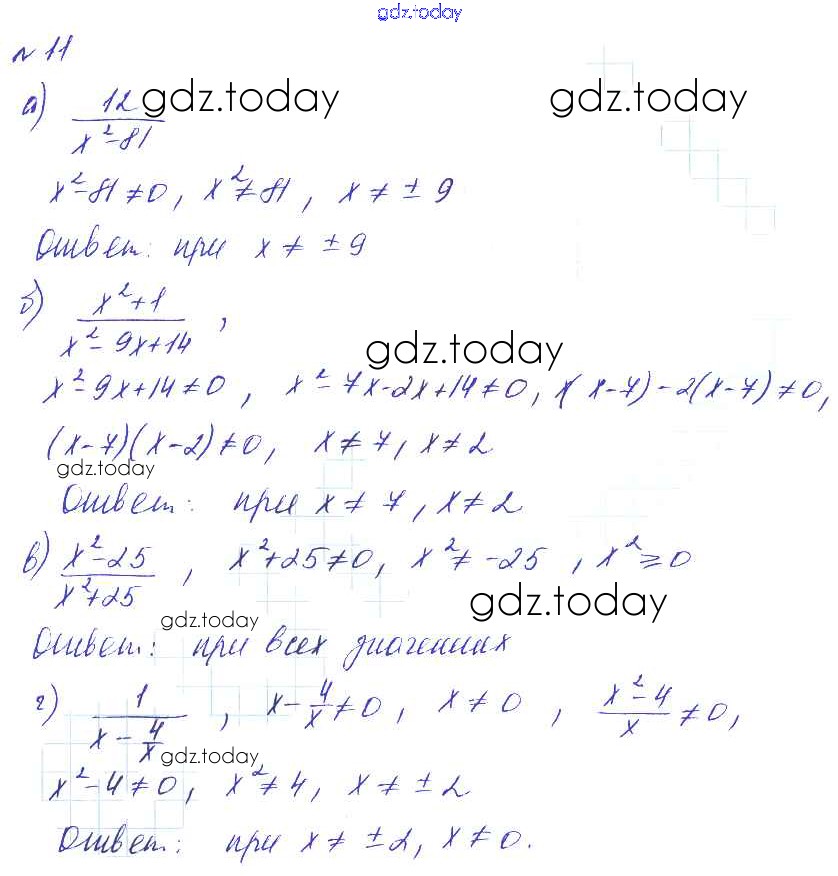 gdz.today
№ 11
а) 12/(x²-81) gdz.today gdz.today
x²-81≠0, x²≠81, x ≠ ± 9
Ответ: при x ≠ ± 9
б) (x²+1)/(x²-9x+14), gdz.today
x²-9x+14≠0, x²-7x-2x+14≠0, x(x-7)-2(x-7)≠0,
(x-7)(x-2)≠0, x≠7, x≠2
gdz.today
Ответ: при x≠7, x≠2
в) (x²-25)/(x²+25), x²+25≠0, x²≠-25, x²≥0
gdz.today gdz.today
Ответ: при всех значениях
г) 1/(x-4/x), x-4/x≠0, x≠0, (x²-4)/x≠0,
gdz.today
x²-4≠0, x²≠4, x≠±2
Ответ: при x≠±2, x≠0.